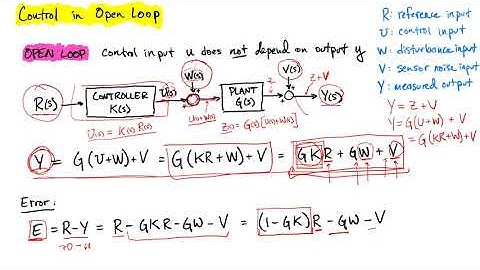 Control in Open Loop
OPEN LOOP: control input u does not depend on output y
R: reference input
U: control input
W: disturbance input
V: sensor noise input
Y: measured output
W(s)
V(s)
R(s)
CONTROLLER
K(s)
U(s)
U(s)+W(s)
PLANT
G(s)
Z
Z+V
Y(s)
U(s) = K(s) R(s)
Z(s) = G(s)[U(s)+W(s)]
Y = Z + V
Y = G(U+W) + V
= G(KR+W)+V
Y = G(U+W)+V = G(KR+W)+V = GKR + GW + V
Error:
E = R-Y = R - GKR - GW - V = (1-GK)R - GW - V